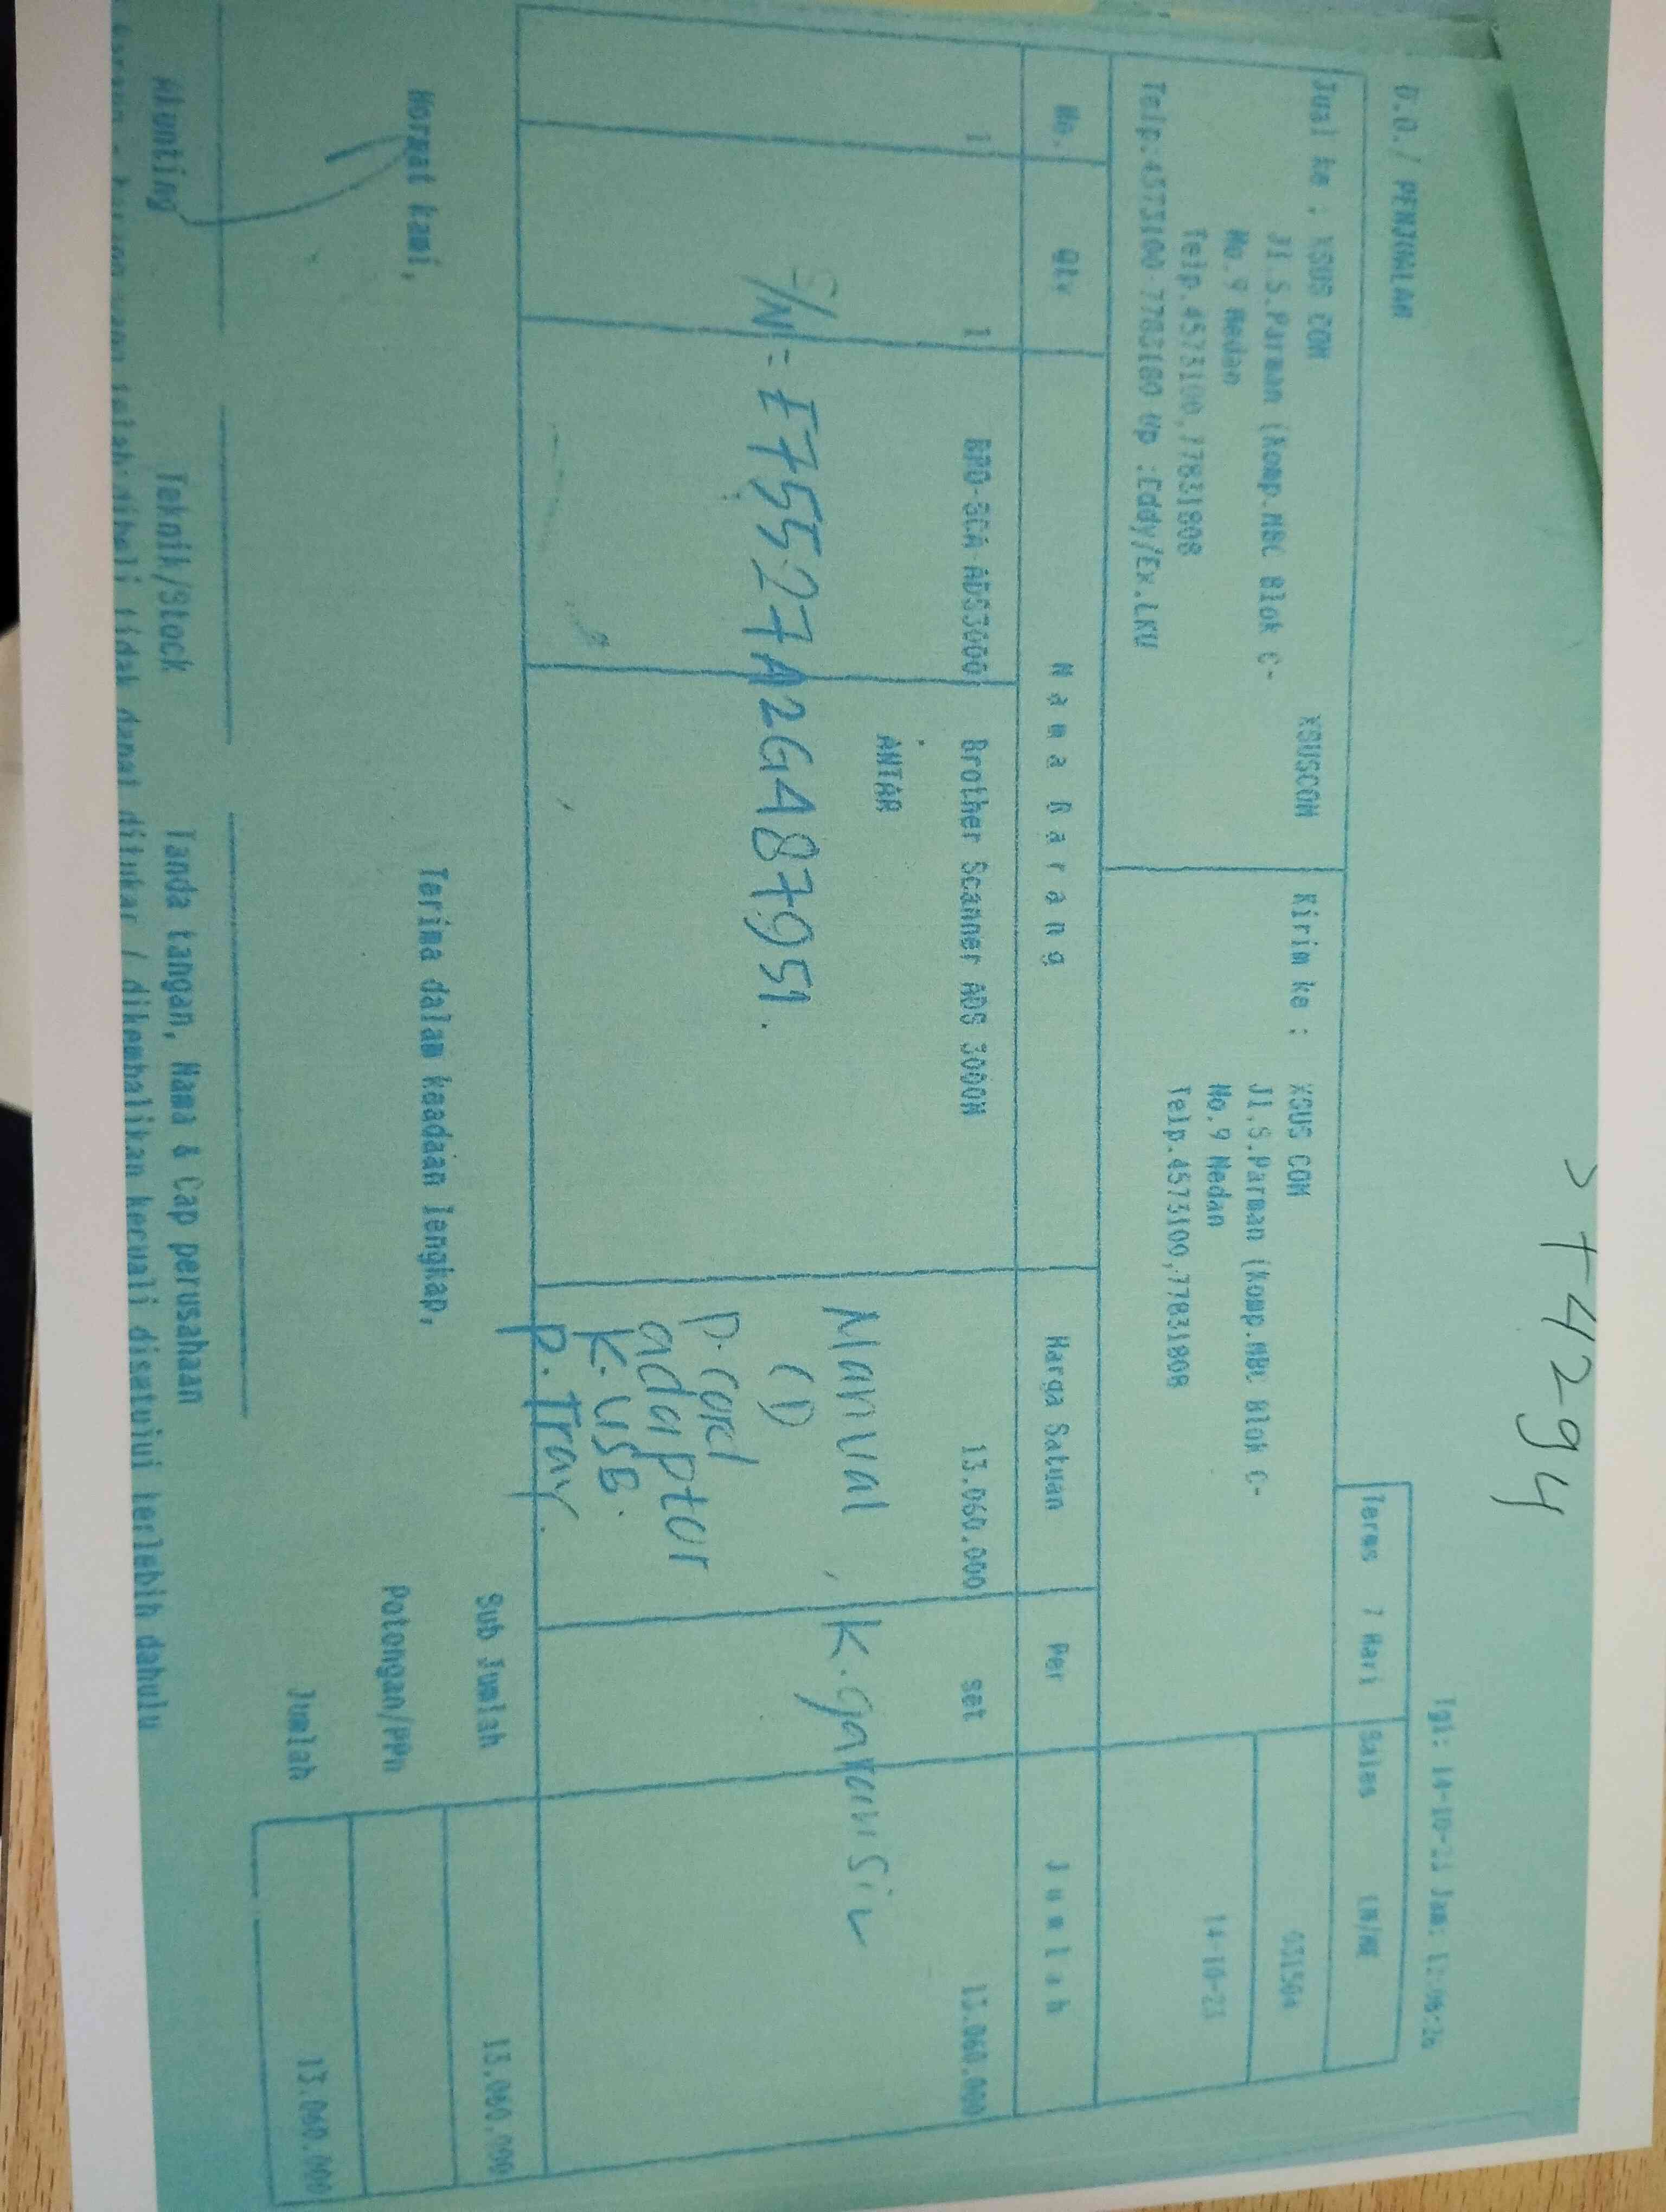 ST4294
D.O./ PENJUALAN
Tgl: 14-10-23 Jam:
Terms 7 Hari Sales
Jual ke : XSUS COM XSUSCOM
Jl.S.Parman (Komp.MBC Blok C-
No.9 Medan
Telp.4573100,77831808
Telp:4573100-7783180 Up :Eddy/Ex.LKU
Kirim ke : XSUS COM
Jl.S.Parman (Komp.MBC Blok C-
No.9 Medan
Telp.4573100,77831808
14-10-23
No. Qty Nama Barang Harga Satuan Per Jumlah
1 1 BRO-SCA-ADS3000 Brother Scanner ADS 3000N 13.060.000 set 13.060.000
ANTAR
Manual, K.garansi
S/N = E75527A2G487951.
(1)
P.cord
adaptor
K.USB.
P.Tray.
Sub Jumlah 13.060.000
Hormat kami, Terima dalam keadaan lengkap,
Potongan/PPn
Jumlah 13.060.000
Akunting Teknik/Stock Tanda tangan, Nama & Cap perusahaan
yang telah dibeli tidak dapat ditukar / dikembalikan kecuali disetujui terlebih dahulu